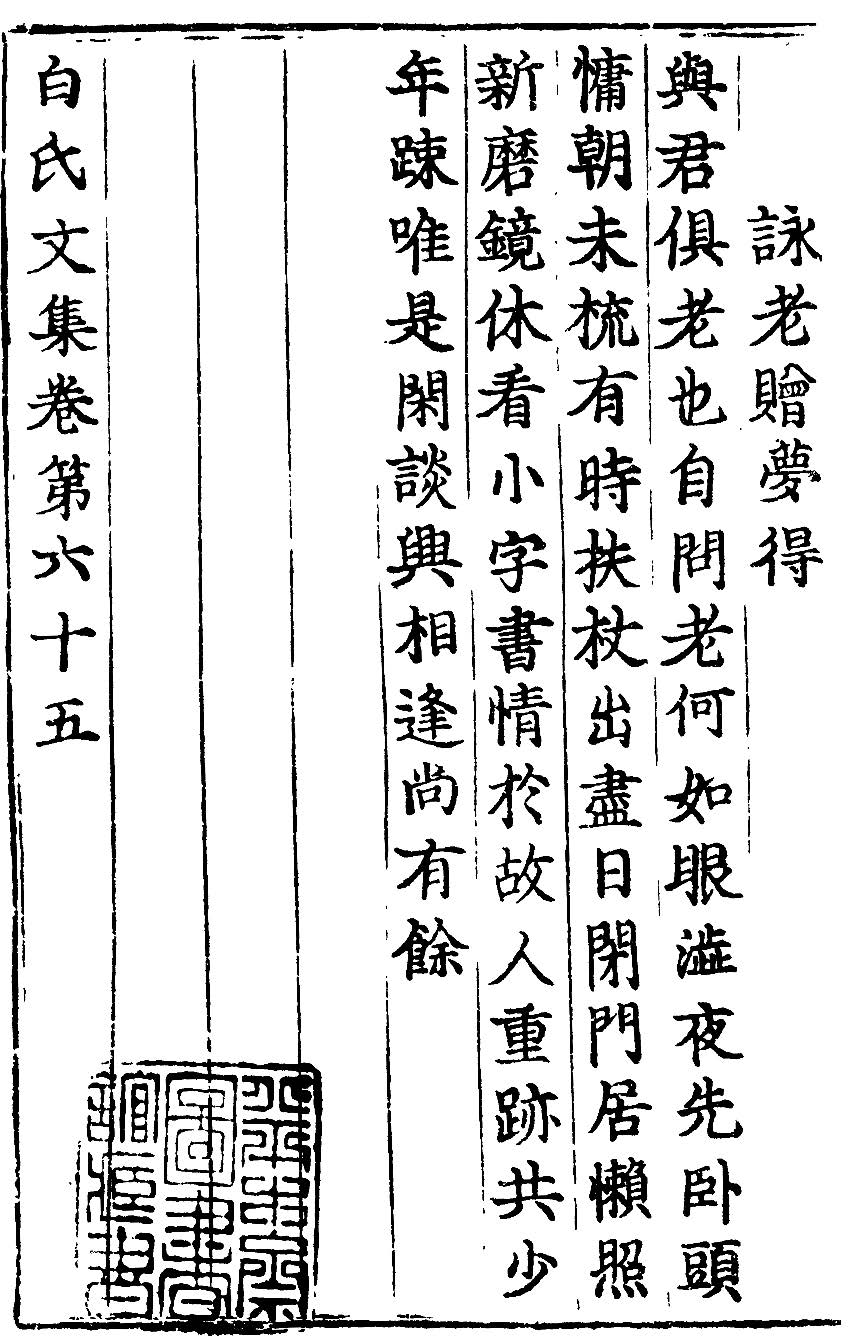 詠老贈夢得
與君俱老也自問老何如眼澁夜先卧頭
慵朝未梳有時扶杖出盡日閉門居懶照
新磨鏡休看小字書情於故人重跡共少
年踈唯是閑談興相逢尚有餘
白氏文集卷第六十五